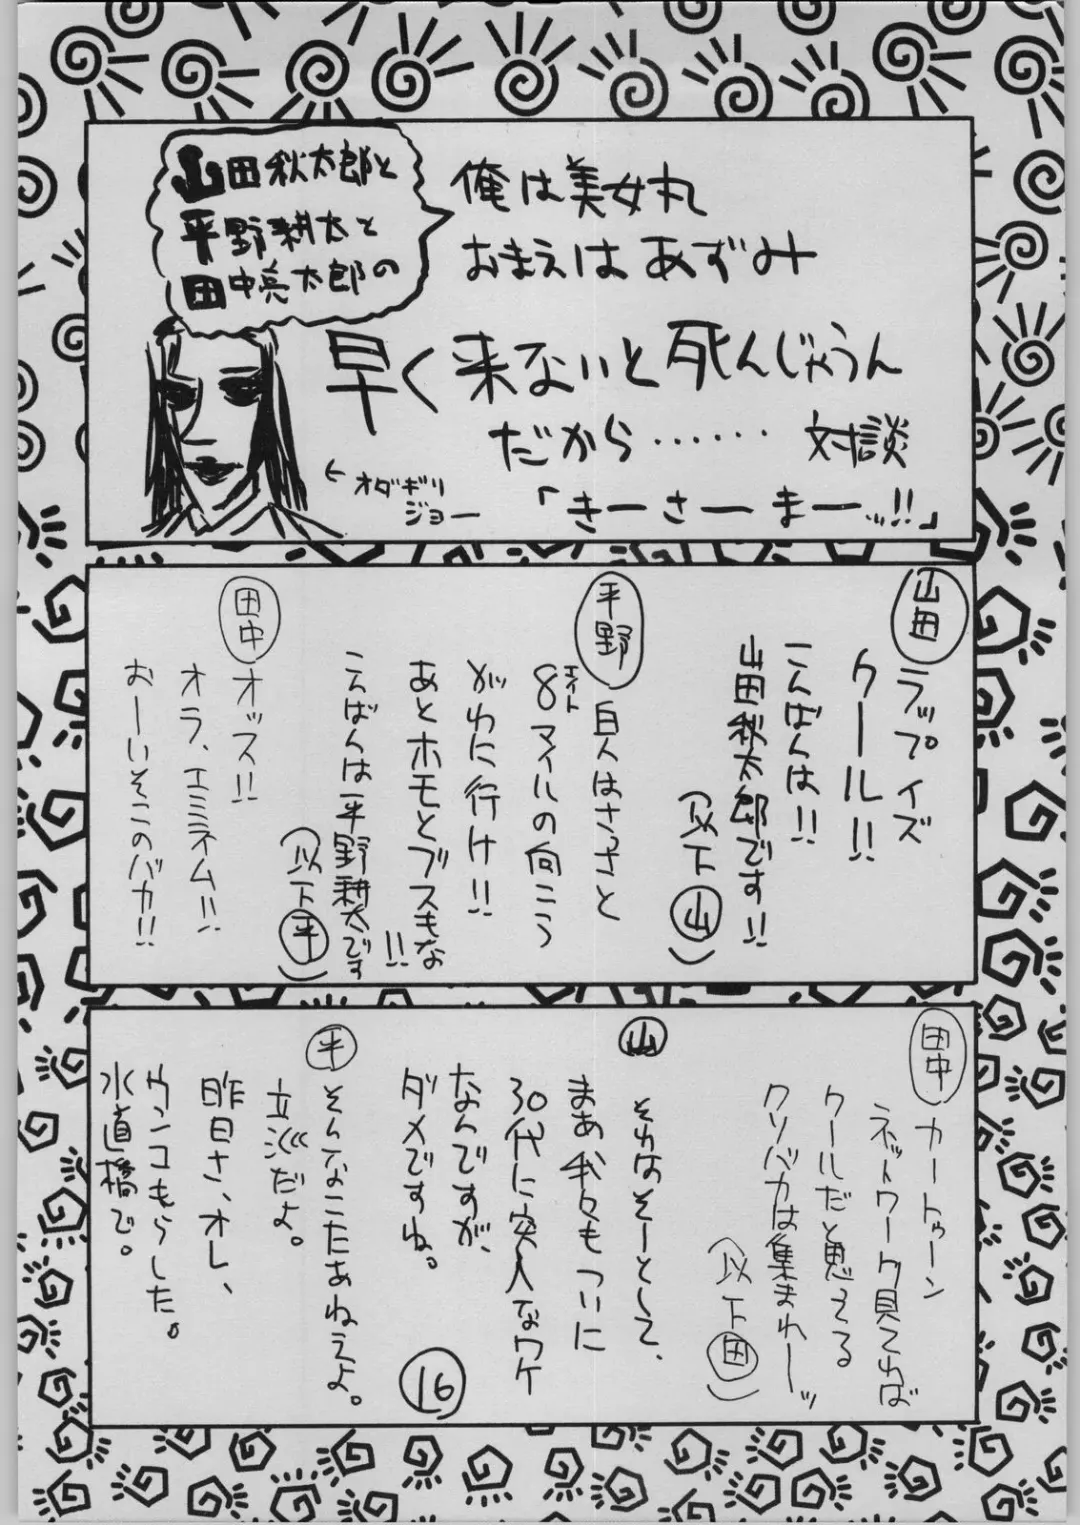 山田秋太郎と
平野耕太と
田中亮太郎の
俺は美女丸
おまえはあずみ
早く来ないと死んじゃうん
だから…… 対談
「きーさーまー…!!」
←オダギリ
ジョー
山田
ラップイズ
クール!!
こんばんは!!
山田秋太郎です!!
(以下山)
平野
白人はさっさと
8マイルの向こう
エイト
がわに行け!!
あとホモとブスもな
!!
こんばんは平野耕太です
(以下平)
田中
オッス!!
オラ、エミネム!!
おーいそこのバカ!!
田中
カートゥーン
ネットワーク見てれば
クールだと思ってる
クソバカは集まれーッ
(以下田)
山
それはそーとして、
まあ我々もついに
30代に突入なワケ
なんですが、
ダメですね。
16
平
そんなこたあねえよ。
立派だよ。
昨日さ、オレ、
ウンコもらした。
水道橋で。